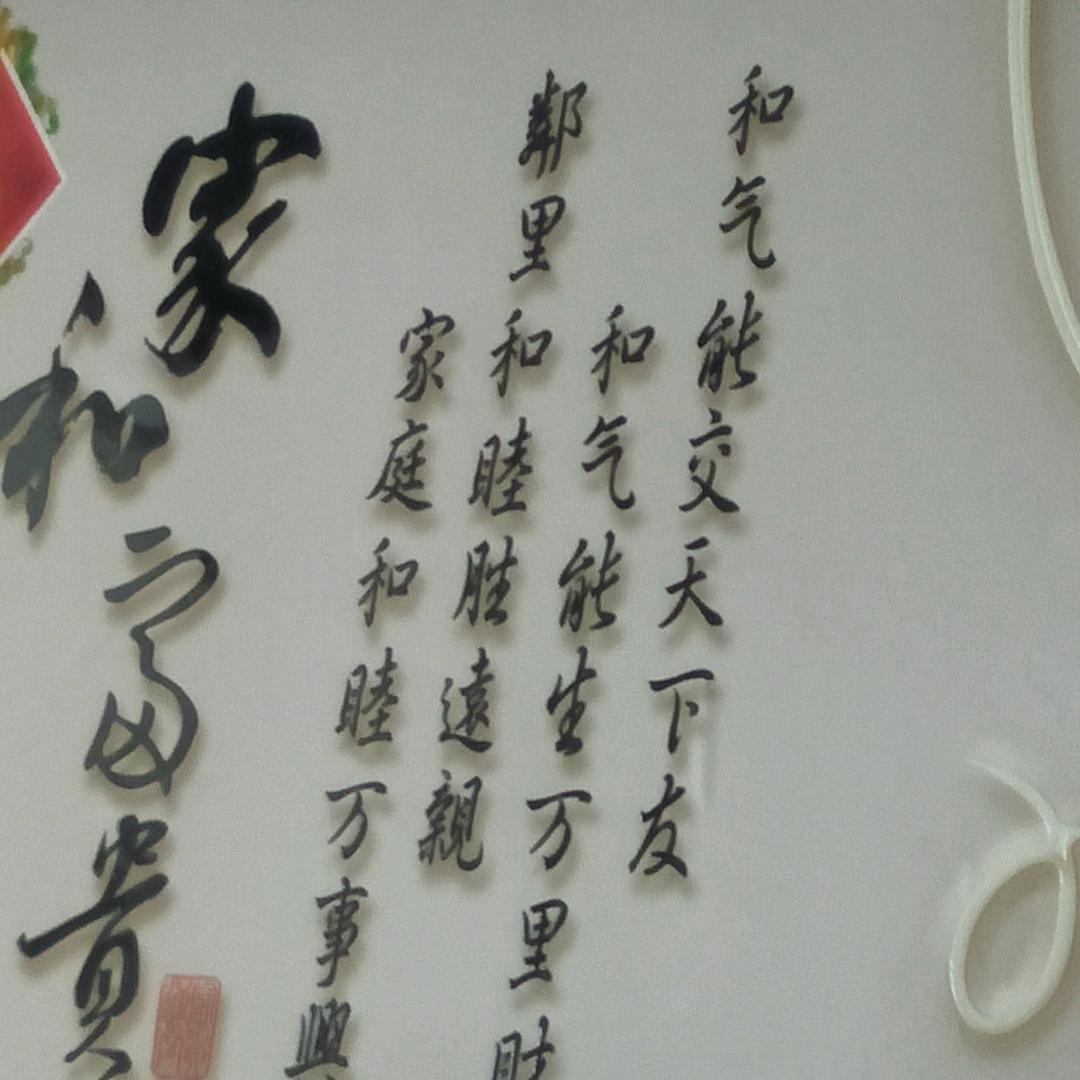 和气能交天下友
和气能生万里财
鄰里和睦胜遠親
家庭和睦万事興
家和富貴